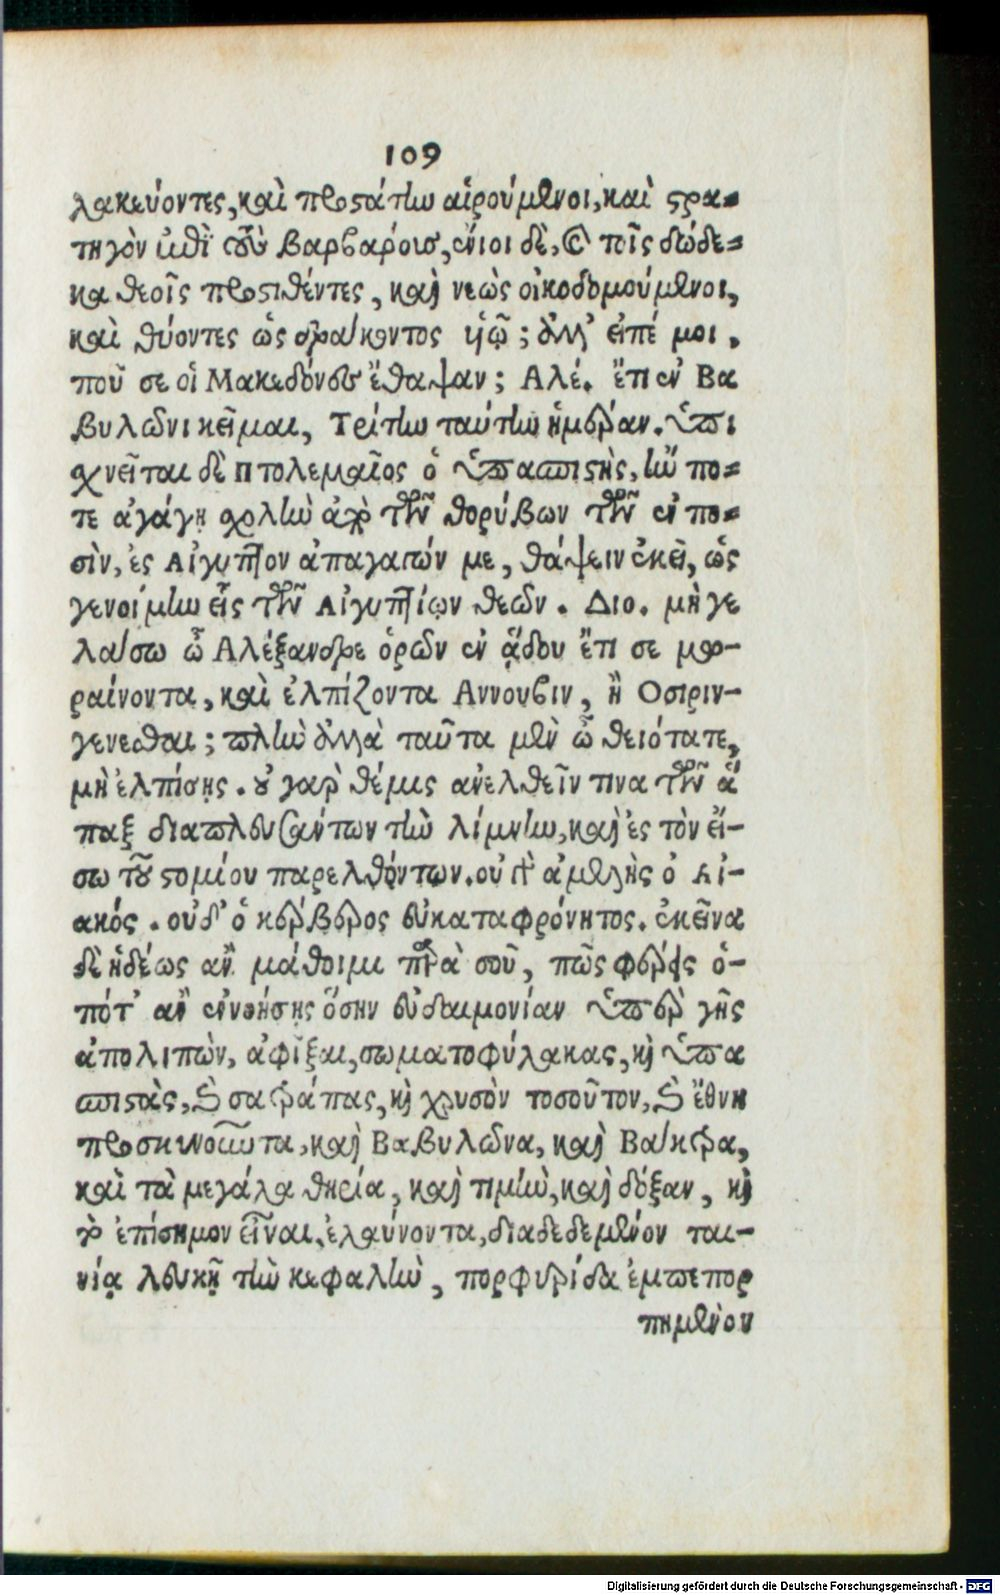 109
λακεύοντες, καὶ προστάτην αἱρούμενοι, καὶ στρα-
τηγὸν ἐπὶ τοὺς βαρβάρους, ἔνιοι δὲ, καὶ τοῖς δώδε-
κα θεοῖς προστιθέντες, καὶ νεὼς οἰκοδομούμενοι,
καὶ θύοντες ὡς δράκοντος ὑιῷ; ἀλλ' εἰπέ μοι,
ποῦ σε οἱ Μακεδόνες ἔθαψαν; Αλέ. ἔτι ἐν Βα
βυλῶνι κεῖμαι, Τρίτην ταύτην ἡμέραν. ὑπι
χνεῖται δὲ Πτολεμαῖος ὁ ὑπασπιστὴς, ἢν πο-
τε ἀγάγῃ σχολὴν ἀπὸ τῶν θορύβων τῶν ἐν πο-
σὶν, ἐς Αἰγυπτον ἀπαγαγών με, θάψειν ἐκεῖ, ὡς
γενοίμην εἷς τῶν Αἰγυπτίων θεῶν. Διο. μὴ γε
λάσω ὦ Αλέξανδρε ὁρῶν ἐν ᾅδου ἔτι σε μω-
ραίνοντα, καὶ ἐλπίζοντα Αννουβιν, ἢ Οσιριν-
γενεσθαι; πλὴν ἀλλὰ ταῦτα μὲν ὦ θειότατε,
μὴ ἐλπίσῃς. οὐ γαρ θέμις ανελθεῖν τινα τῶν ἅ
παξ διαπλευσάντων τὴν λίμνην, καὶ ἐς τὸν εἴ-
σω τοῦ στομίου παρελθόντων. οὐ γὰρ ἀμελὴς ὁ Αἰ-
ακός. οὐδ' ὁ κέρβερος εὐκαταφρόνητος. ἐκεῖνα
δὲ ἡδέως ἂν μάθοιμι παρὰ σοῦ, πῶς φέρεις ὁ-
πότ' ἂν ἐννοήσῃς ὅσην εὐδαιμονίαν ὑπὲρ γῆς
ἀπολιπὼν, ἀφῖξαι, σωματοφύλακας, καὶ ὑπα
σπιστὰς, καὶ σατράπας, καὶ χρυσὸν τοσοῦτον, καὶ ἔθνη
προσκυνοῦντα, καὶ Βαβυλῶνα, καὶ Βάκτρα,
καὶ τὰ μεγάλα θηρία, καὶ τιμὴν, καὶ δόξαν, καὶ
τὸ ἐπίσημον εἶναι, ἐλαύνοντα, διαδεδεμένον ται-
νίᾳ λευκῇ τὴν κεφαλὴν, πορφυρίδα ἐμπεπορ
πημένον
Digitalisierung gefördert durch die Deutsche Forschungsgemeinschaft - DFG